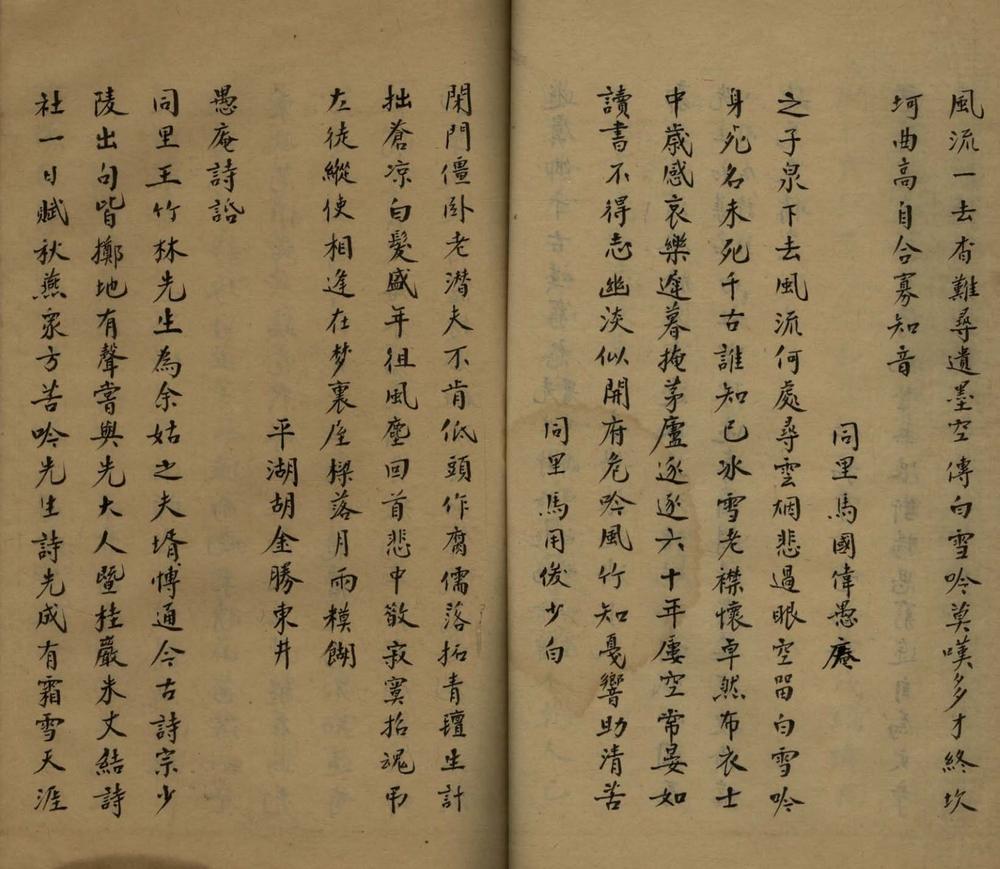 風流一去杳難尋遺墨空傳白雪吟莫嘆多才終坎
坷曲高自合寡知音
同里馬國偉愚庵
之子泉下去風流何處尋雲烟悲過眼空留白雪吟
身死名未死千古誰知己冰雪老襟懷卓然布衣士
中歲感哀樂遂暮掩茅廬逐逐六十年屢空常晏如
讀書不得志幽淡似開府危吟風竹知戞響助清苦
同里馬用俊少白
閑門僵卧老潛夫不肯低頭作腐儒落拓青璮生計
拙蒼凉白髮盛年徂風塵回首悲中散寂寞招魂弔
左徒縱使相逢在梦裏屋樑落月雨糢餬
平湖胡金勝東井
愚庵詩話
同里王竹林先生為余姑之夫壻博通今古詩宗少
陵出句皆擲地有聲嘗與先大人曁桂巖米丈結詩
社一日賦秋燕眾方苦吟先生詩先成有霜雪天涯